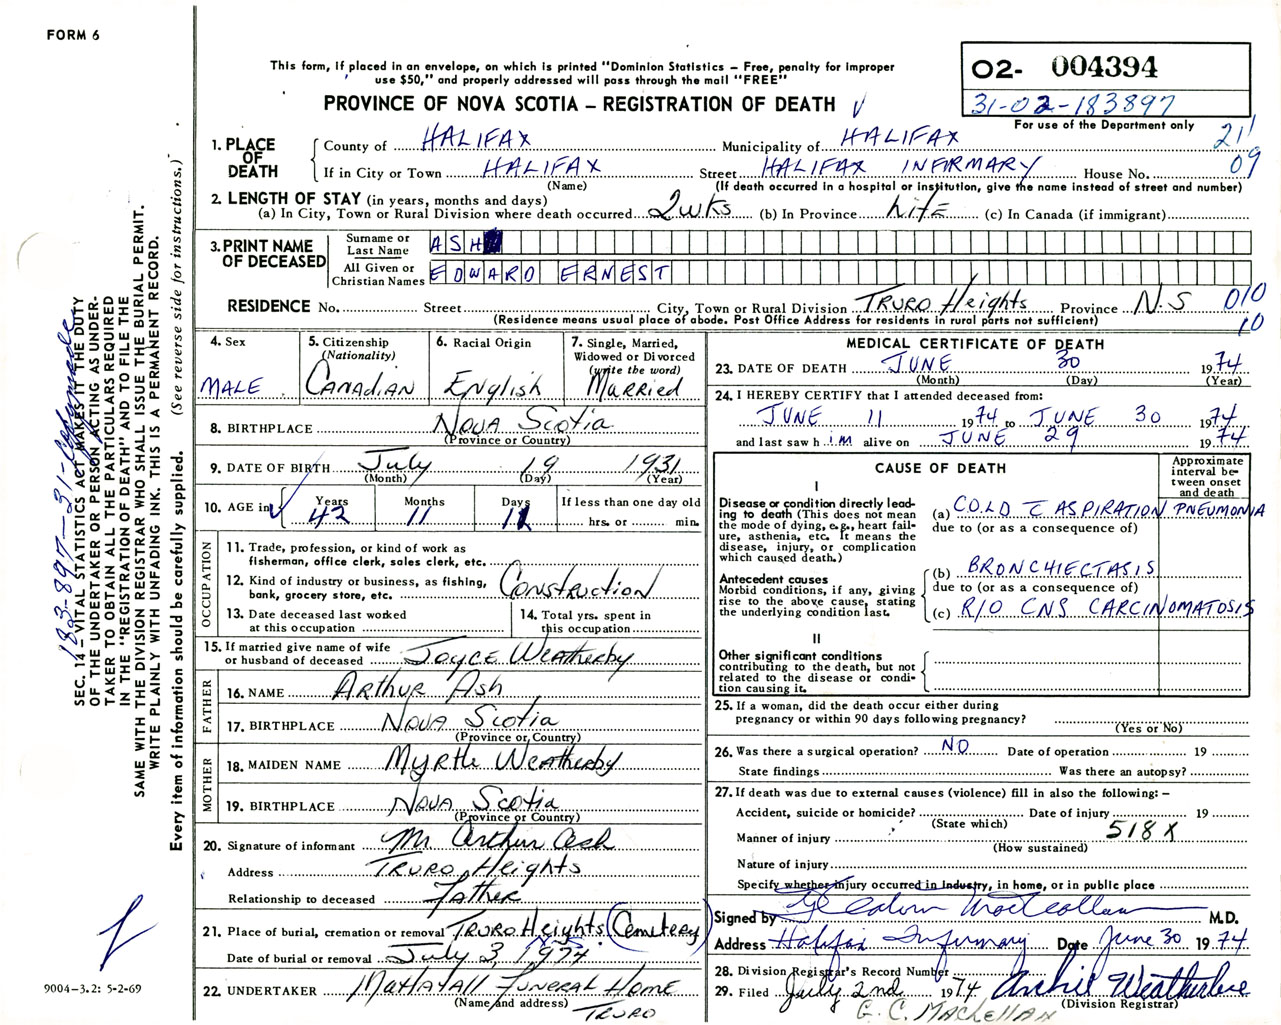 FORM 6
This form, if placed in an envelope, on which is printed "Dominion Statistics – Free, penalty for improper
use $50," and properly addressed will pass through the mail "FREE"
PROVINCE OF NOVA SCOTIA – REGISTRATION OF DEATH
02- 004394
31-02-183897
For use of the Department only
21
09
1. PLACE OF DEATH
County of HALIFAX Municipality of HALIFAX
If in City or Town HALIFAX Street HALIFAX INFIRMARY House No.
(Name) (If death occurred in a hospital or institution, give the name instead of street and number)
2. LENGTH OF STAY (in years, months and days)
(a) In City, Town or Rural Division where death occurred 2 wks (b) In Province LIFE (c) In Canada (if immigrant)
3. PRINT NAME OF DECEASED
Surname or Last Name ASH
All Given or Christian Names EDWARD ERNEST
RESIDENCE No. Street City, Town or Rural Division TRURO Heights Province N.S
(Residence means usual place of abode. Post Office Address for residents in rural parts not sufficient)
010
10
4. Sex
MALE
5. Citizenship
(Nationality)
CANADIAN
6. Racial Origin
English
7. Single, Married,
Widowed or Divorced
(write the word)
Married
8. BIRTHPLACE NOVA Scotia
(Province or Country)
9. DATE OF BIRTH July 19 1931
(Month) (Day) (Year)
10. AGE in Years Months Days If less than one day old
42 11 11 hrs. or min.
OCCUPATION
11. Trade, profession, or kind of work as
fisherman, office clerk, sales clerk, etc.
12. Kind of industry or business, as fishing,
bank, grocery store, etc. Construction
13. Date deceased last worked
at this occupation
14. Total yrs. spent in
this occupation
15. If married give name of wife
or husband of deceased Joyce Weatherby
FATHER
16. NAME Arthur Ash
17. BIRTHPLACE Nova Scotia
(Province or Country)
MOTHER
18. MAIDEN NAME Myrtle Weatherby
19. BIRTHPLACE Nova Scotia
(Province or Country)
20. Signature of informant Mr Arthur Ash
Address TRURO Heights
Relationship to deceased Father
21. Place of burial, cremation or removal TRURO Heights (Cemetery)
Date of burial or removal July 3, 1974
22. UNDERTAKER Mattatall Funeral Home
(Name and address) TRURO
MEDICAL CERTIFICATE OF DEATH
23. DATE OF DEATH JUNE 30 1974
(Month) (Day) (Year)
24. I HEREBY CERTIFY that I attended deceased from:
JUNE 11 1974 to JUNE 30 1974
and last saw h im alive on JUNE 29 1974
CAUSE OF DEATH
Approximate
interval be-
tween onset
and death
I
Disease or condition directly lead-
ing to death (This does not mean
the mode of dying, e.g., heart fail-
ure, asthenia, etc. It means the
disease, injury, or complication
which caused death.)
(a) C.O.L.D c ASPIRATION PNEUMONIA
due to (or as a consequence of)
Antecedent causes
Morbid conditions, if any, giving
rise to the above cause, stating
the underlying condition last.
(b) BRONCHIECTASIS
due to (or as a consequence of)
(c) R/O CNS CARCINOMATOSIS
II
Other significant conditions
contributing to the death, but not
related to the disease or condi-
tion causing it.
25. If a woman, did the death occur either during
pregnancy or within 90 days following pregnancy?
(Yes or No)
26. Was there a surgical operation? NO Date of operation 19
State findings Was there an autopsy?
27. If death was due to external causes (violence) fill in also the following: –
Accident, suicide or homicide? Date of injury 19
(State which)
Manner of injury 518X
(How sustained)
Nature of injury
Specify whether injury occurred in industry, in home, or in public place
Signed by M.D.
Address Halifax Infirmary Date June 30 1974
28. Division Registrar's Record Number
29. Filed July 2nd 1974 Archie Weatherbee
(Division Registrar)
G. C. MacLellan
SEC. 14 – VITAL STATISTICS ACT MAKES IT THE DUTY
OF THE UNDERTAKER OR PERSON ACTING AS UNDER-
TAKER TO OBTAIN ALL THE PARTICULARS REQUIRED
IN THE "REGISTRATION OF DEATH" AND TO FILE THE
SAME WITH THE DIVISION REGISTRAR WHO SHALL ISSUE THE BURIAL PERMIT.
WRITE PLAINLY WITH UNFADING INK. THIS IS A PERMANENT RECORD.
Every item of information should be carefully supplied. (See reverse side for instructions.)
183-897-31-
9004-3.2: 5-2-69